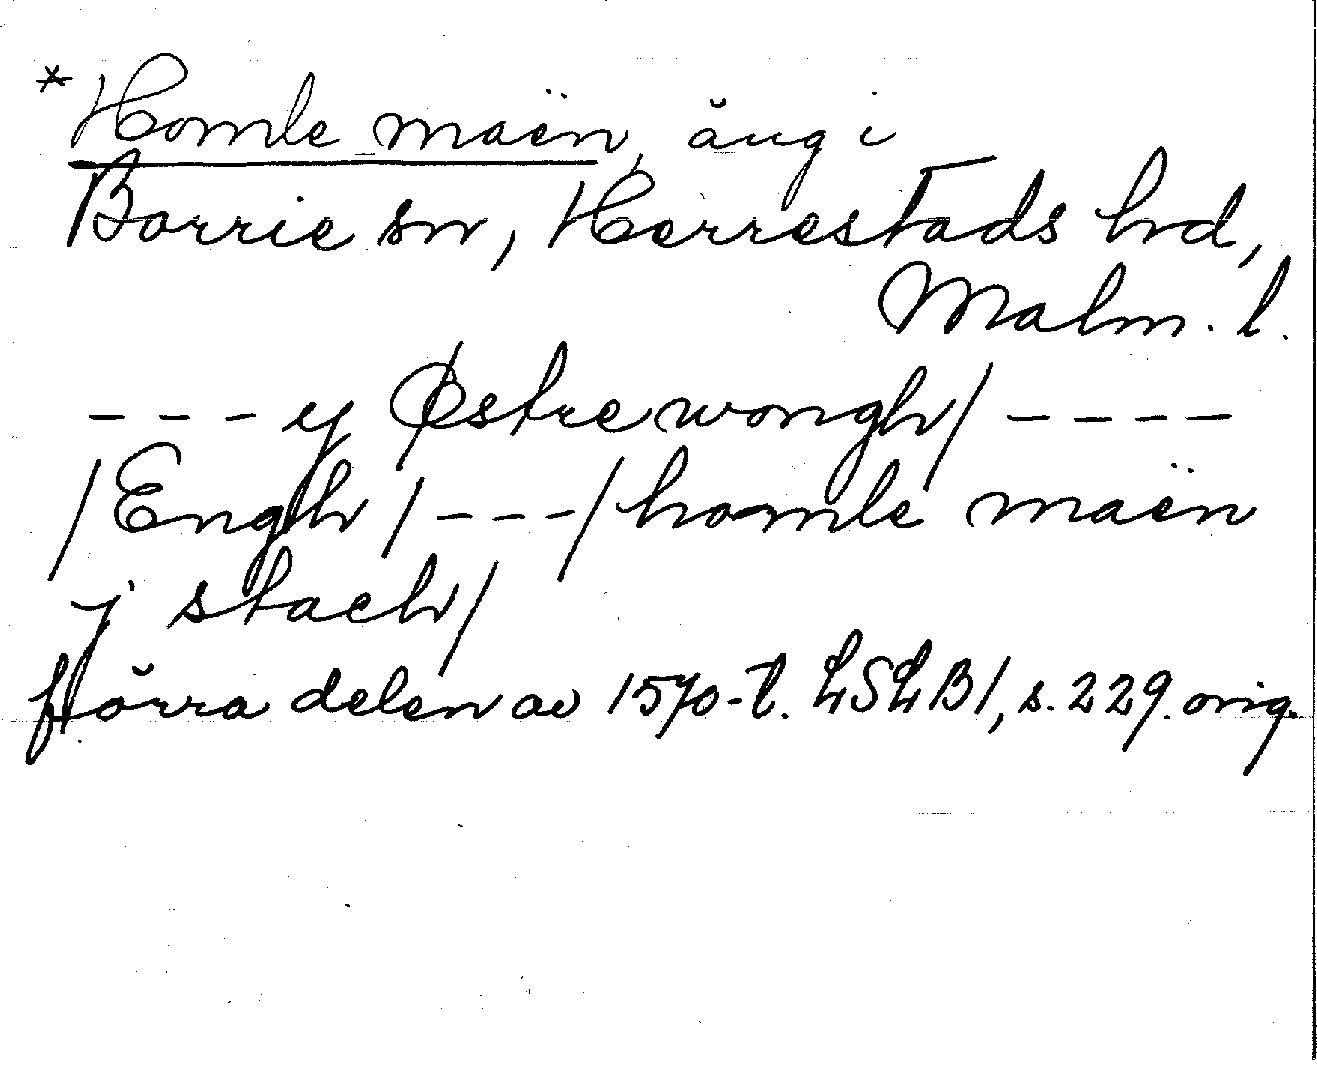 *Homle maën, äng i
Borrie sn, Herrestads hd,
Malm. l.
- - - y Østre wongh/ - - - -
/Engh/ - - -/homle maën
j stach/
förra delen av 1570-t. LSLB1, s. 229. orig.